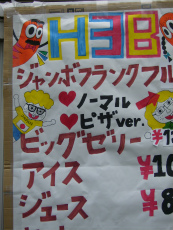 H3B
ジャンボフランクフル
♥ノーマル
♥ピザver.
ビッグゼリー ¥1
アイス ¥10
ジュース ¥8